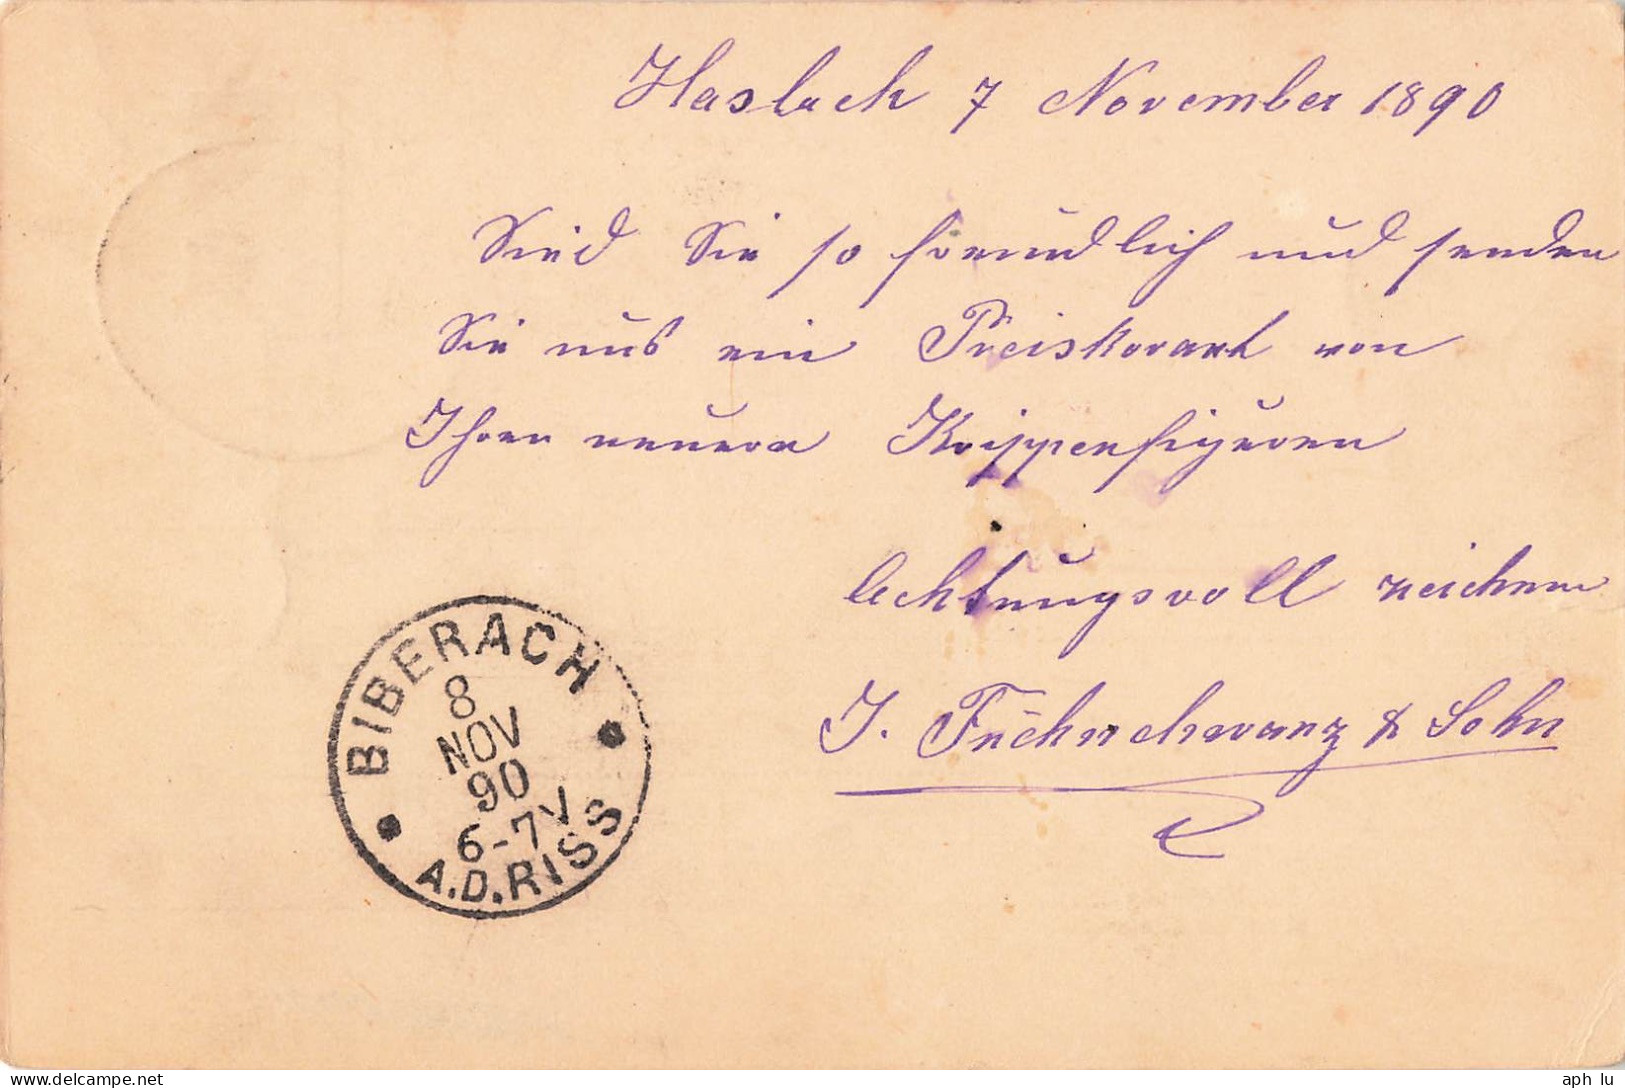 Haslach 7 November 1890
Sind Sie so freundlich und senden
Sie uns ein Preiskorant von
Ihren neuern Krippenfiguren
Achtungsvoll zeichnen
J. & Sohn
BIBERACH
8
NOV
90
6-7V
A.D.RISS
aph lu